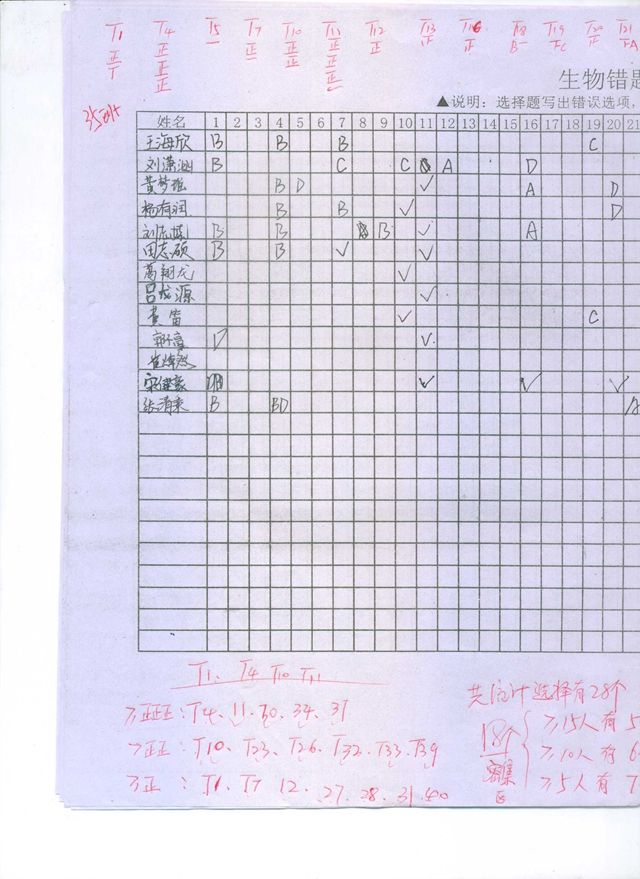 T1 T4 T5 T7 T10 T11 T12 T13 T16 T18 T19 T20 T21
正丅 正正正 一 正 正正 正正正一 正
生物错题
▲说明：选择题写出错误选项，
姓名 1 2 3 4 5 6 7 8 9 10 11 12 13 14 15 16 17 18 19 20 21
王海欣 B B B C
刘潇 B C C A D
黄梦 B D ✓ A D
杨有润 B B ✓ D
刘 B B B ✓ A
田志硕 B B ✓ ✓
葛翔龙 ✓
吕龙源 ✓
贵笛 ✓ C
郭 D ✓
宋健豪 ✓ ✓ ✓
张清来 B BD A
T1、T4 T10 T11
≥正正正：T4、11、30、34、31
≥正正：T10、T23、T26、T32、T33、T39
≥正：T1、T7 12、27、28、31、40
共统计选择有28个
18个
密集区
≥15人有5
≥10人有6
≥5人有7